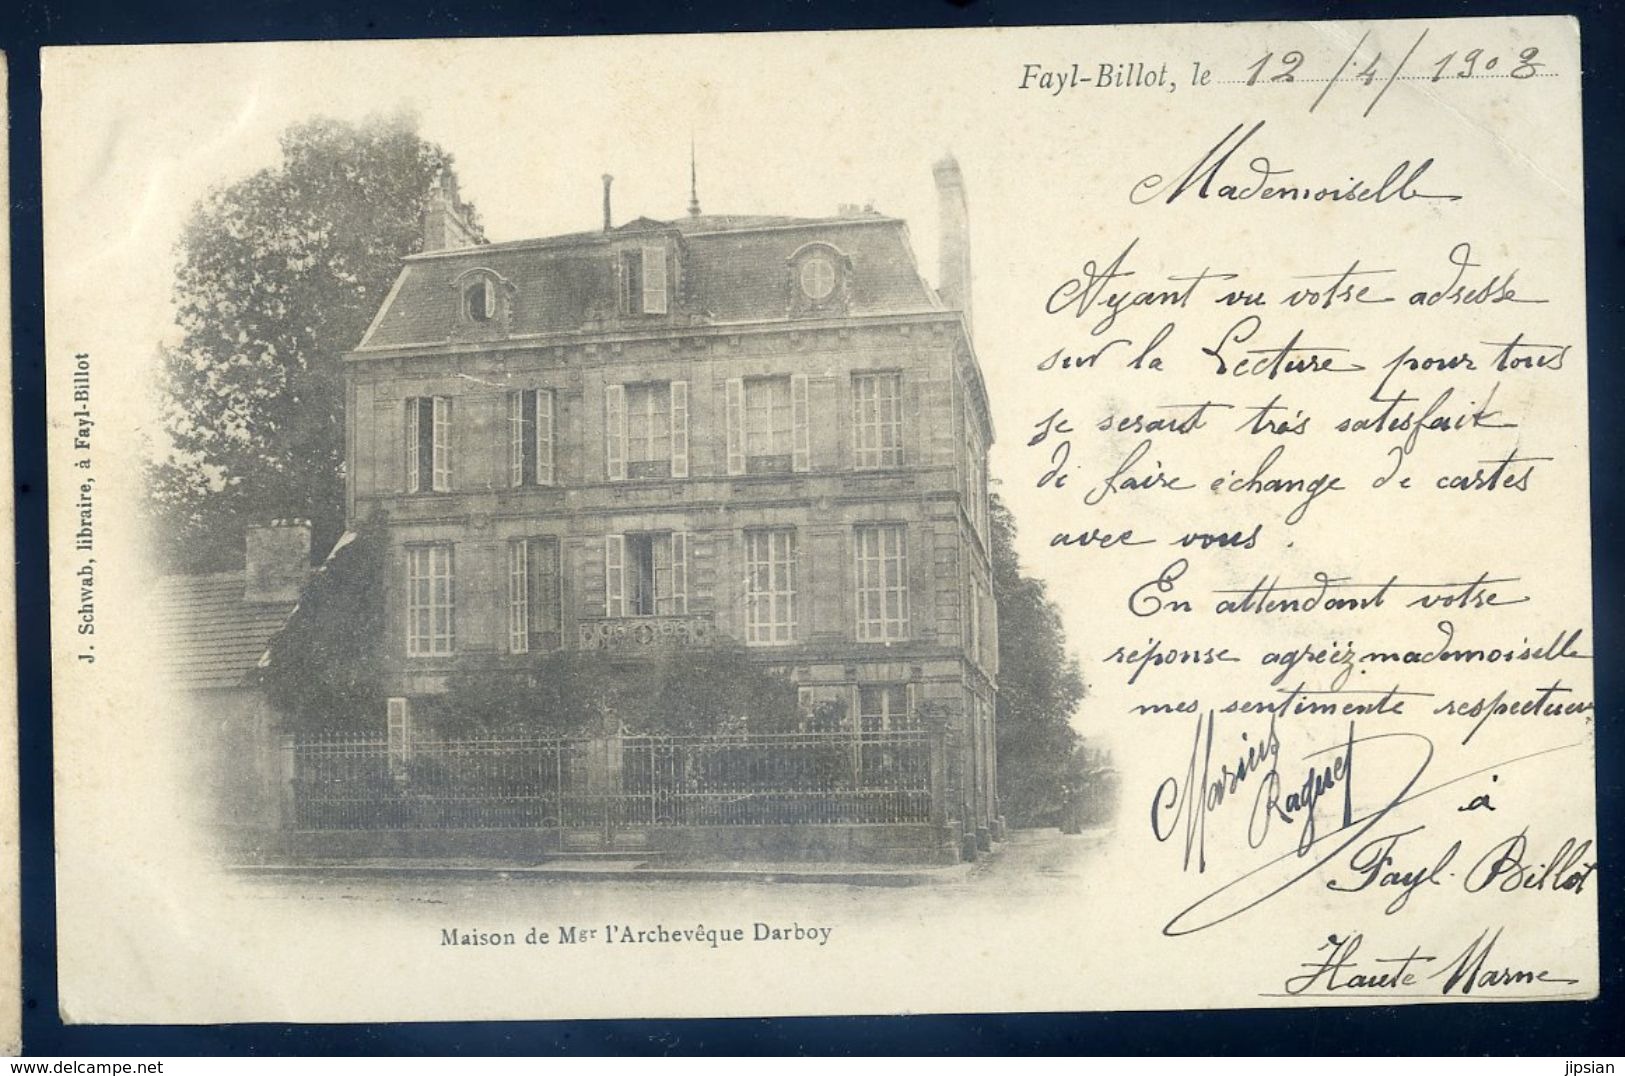 Fayl-Billot, le 12/4/1903
Mademoiselle
Ayant vu votre adresse
sur la Lecture pour tous
je serait très satisfait
di faire échange de cartes
avec vous.
En attendant votre
réponse agréez mademoiselle
mes sentiments respectueux
Marius
Raguet
à
Fayl-Billot
Haute Marne
J. Schwab, libraire, à Fayl-Billot
Maison de Mgr l'Archevêque Darboy
jipsian